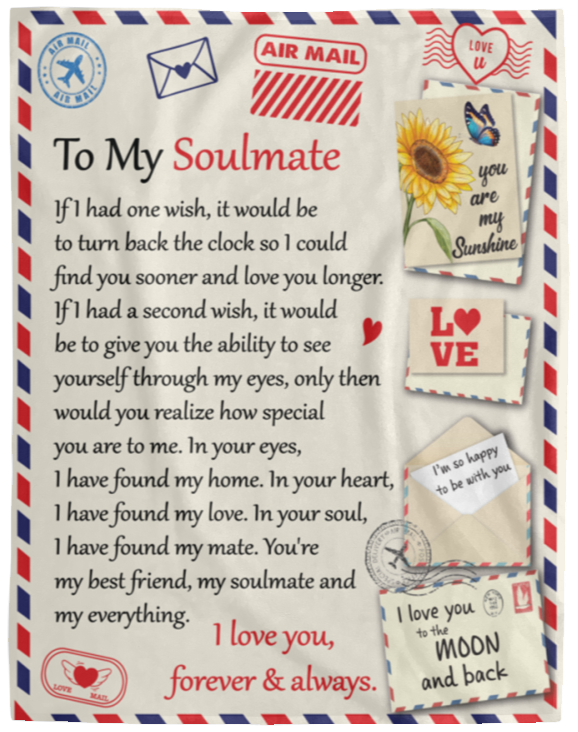 AIR MAIL
AIR MAIL
AIR MAIL
LOVE
u
To My Soulmate
If I had one wish, it would be
to turn back the clock so I could
find you sooner and love you longer.
If I had a second wish, it would
be to give you the ability to see
yourself through my eyes, only then
would you realize how special
you are to me. In your eyes,
I have found my home. In your heart,
I have found my love. In your soul,
I have found my mate. You're
my best friend, my soulmate and
my everything.
I love you,
forever & always.
you
are
my
Sunshine
LOVE
I'm so happy
to be with you
I love you
to the
MOON
and back
LOVE
MAIL